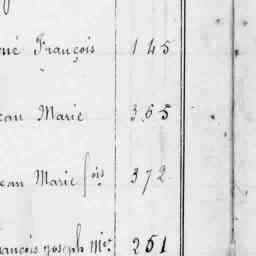 né François 145
ean Marie 365
ean Marie fois 372
ançois joseph Mie 251